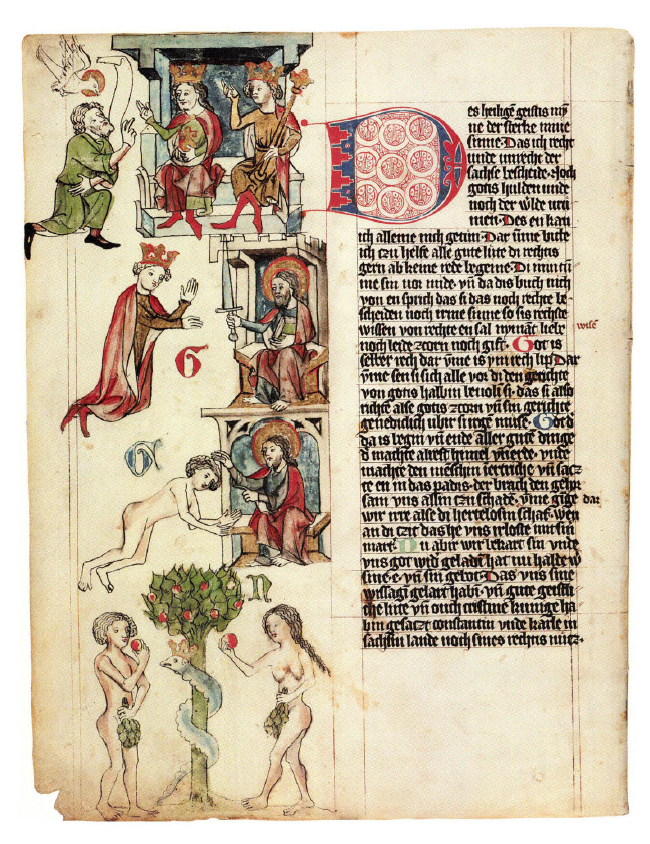 es heiligē geistis my̅
ne der sterke mine
sinne · Das ich recht
unde unrecht der
sachse bescheide · Noch
gotis hulden unde
noch der w̓lde vru
men · Des en kan
ich alleine nich getun · Dar ūme bitte
ich czu helfe alle gute lute di rechtis
gern ab keine rede begeine · Di
me sin vor mide · vn̄ da dis buch nich
von en sprich das si das noch rechte be ·
scheiden noch irme sinne so sis rechste
wissen von rechte en sal nymāt lieb
noch leide czorn noch gift · Got is
selber rech dar v̄me is ym rech lip · Dar
v̄me sen si sich alle vor di den gerichte
von gotis halbin bevoli si · das si also
richtē alse gotis czorn vn̄ sin gerichte
genediclich ubir si irge muse · Got d̓
da is begin vn̄ ende aller gutē dinge
d̓ machte alrest himel vn̄ erde · vnde
machte den menschin in ertriche · vn̄ sacz
te en in das padis · der brach den gehr
sam vns allin czu schadē · v̄me gi̅ge dar
wir irre alse di hertelosin schaf · wen
an di czit das he vns irloste mit sin̓
mart̓ · Nu abir wir bekart sin vnde
vns got wid̓ geladin̄ hat nu halde w̓
sine · e · vn̄ sin gebot · Das vns sine
wissagī gelart habī · vn̄ gute geistli
che lute vn̄ ouch cristine kunige ha
bin gesaczt constantin vnde karle in
sachsin lande noch sines rechtis nutz ·
wisē
G
G
N